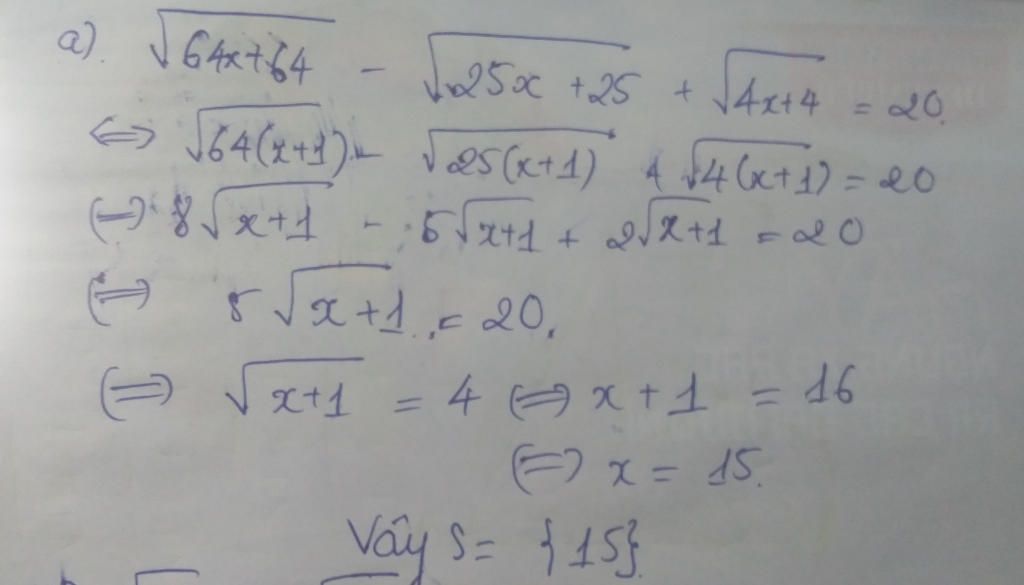 a). √(64x+64) - √(25x+25) + √(4x+4) = 20.
⟺ √(64(x+1)) - √(25(x+1)) + √(4(x+1)) = 20
⟺ 8√(x+1) - 5√(x+1) + 2√(x+1) = 20
⟺ 5√(x+1) = 20.
⟺ √(x+1) = 4 ⟺ x+1 = 16
⟺ x = 15.
Vậy S = {15}